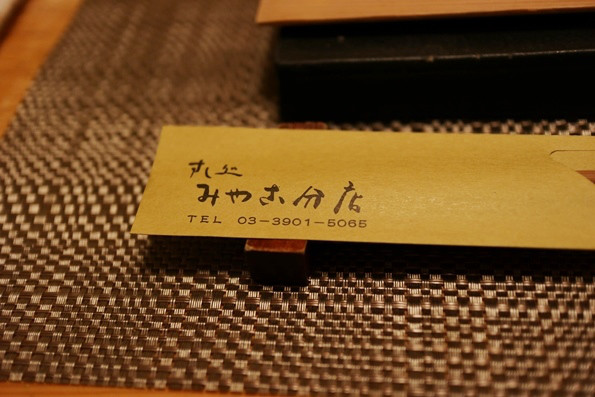 すし処
みやこ分店
TEL 03-3901-5065